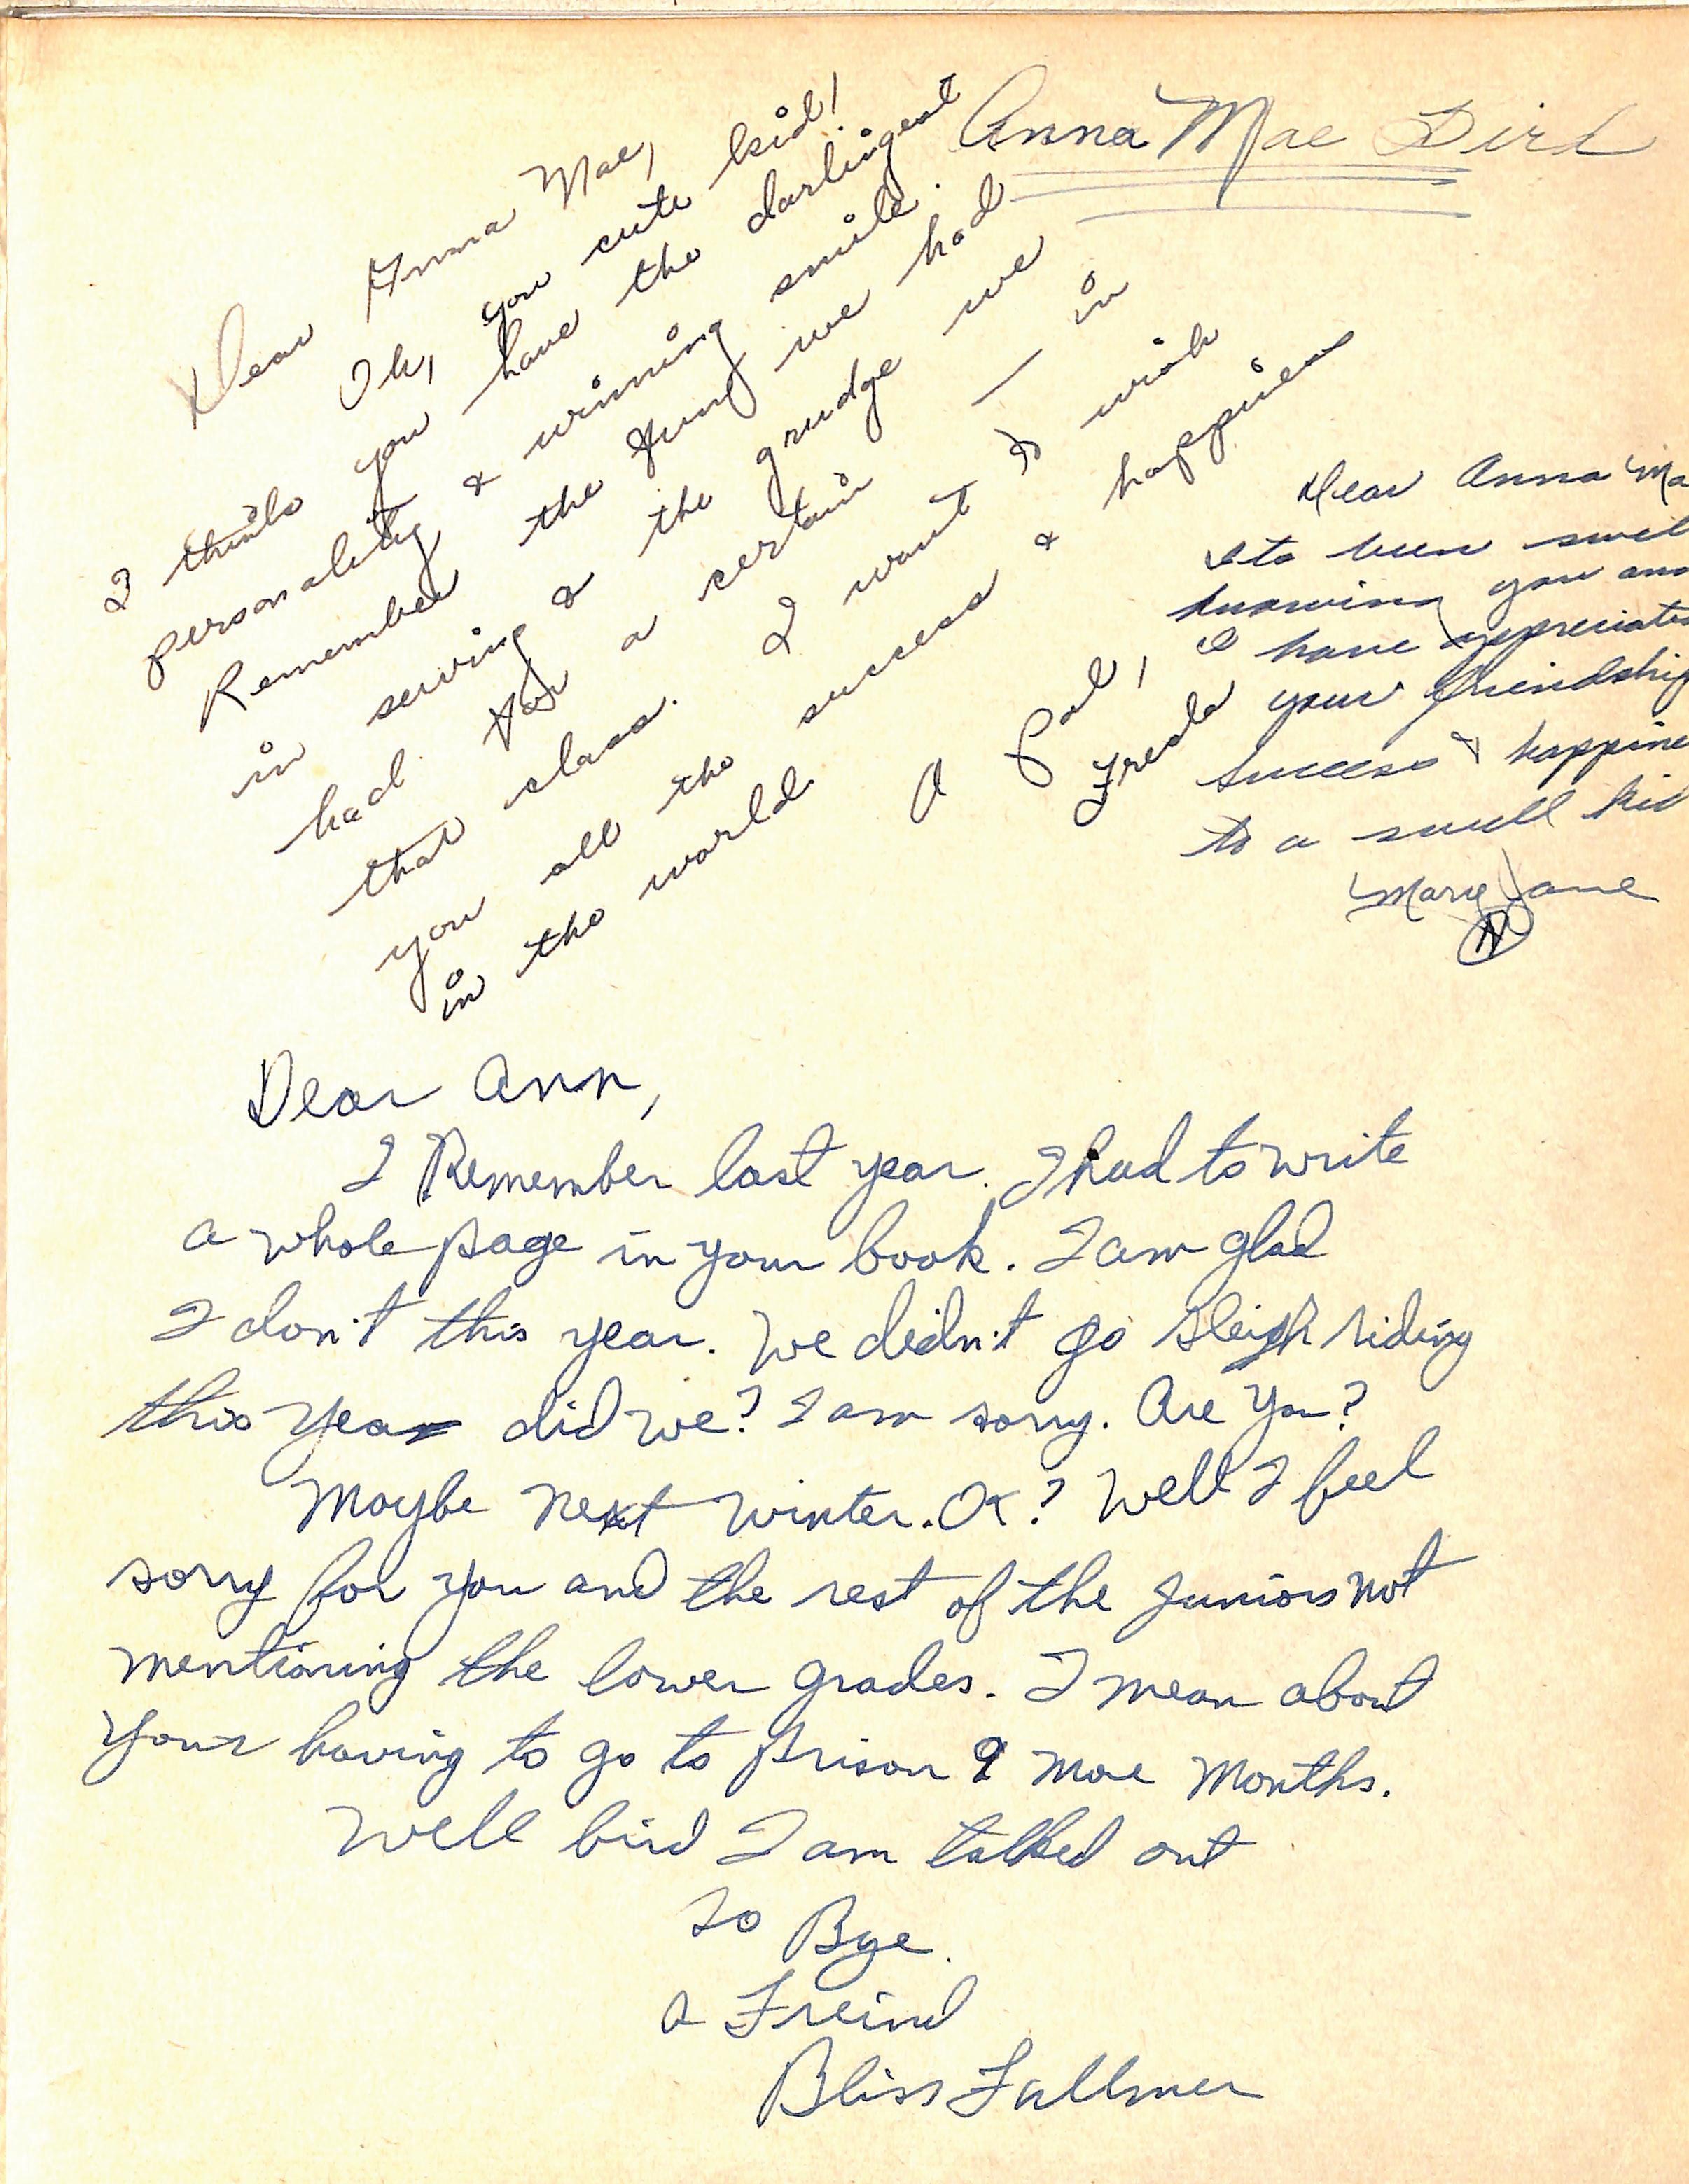 Anna Mae Dird
Dear Anna Mae,
Oh, you cute kid!
I think you have the darlingest
personality & winning smile.
Remember the fun we had
in serving & the grudge we
had for a certain — in
that class. I want to wish
you all the success & happiness
in the world.
A Pal,
Freda
Dear Anna Ma
Its been swel
knowing you and
I have appreciate
your friendship
Success & happine
to a swell kid
Mary Jane
Dear Ann,
I Remember last year. I had to write
a whole page in your book. I am glad
I don't this year. We didn't go sleigh riding
this year did we? I am sorry. Are You?
Maybe next winter. OK? Well I feel
sorry for you and the rest of the juniors not
mentioning the lower grades. I mean about
your having to go to prison 9 more months.
Well bird I am talked out
So Bye.
a Freind
Bliss Fullmer